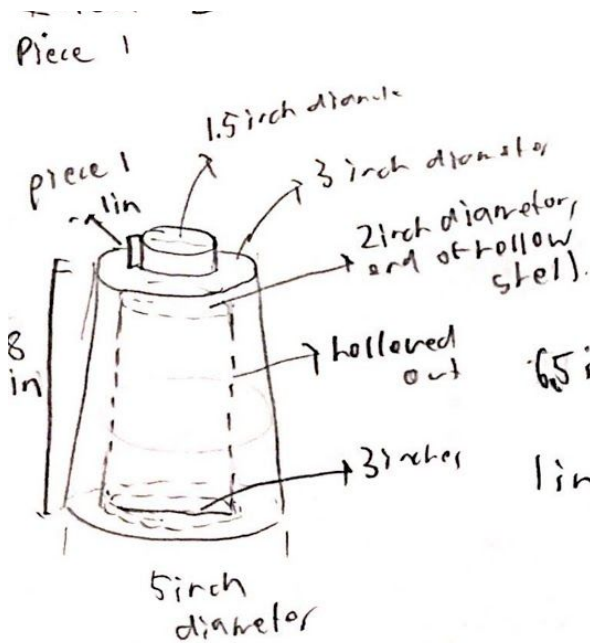 Piece 1
1.5 inch diamete
piece 1
1in
3 inch diameter
2 inch diameter,
end of hollow
shell.
8
in
hollowed
out
6.5 i
3 inches
1in
5 inch
diameter